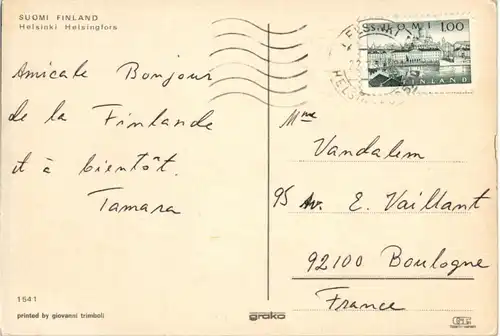 SUOMI FINLAND
Helsinki Helsingfors
Amicale Bonjour
de la Finlande
et à bientôt.
Tamara
SUOMI 1.00
FINLAND
Mme
Vandalem
95 Av. E. Vaillant
92100 Boulogne
France
1541
printed by giovanni trimboli
grako